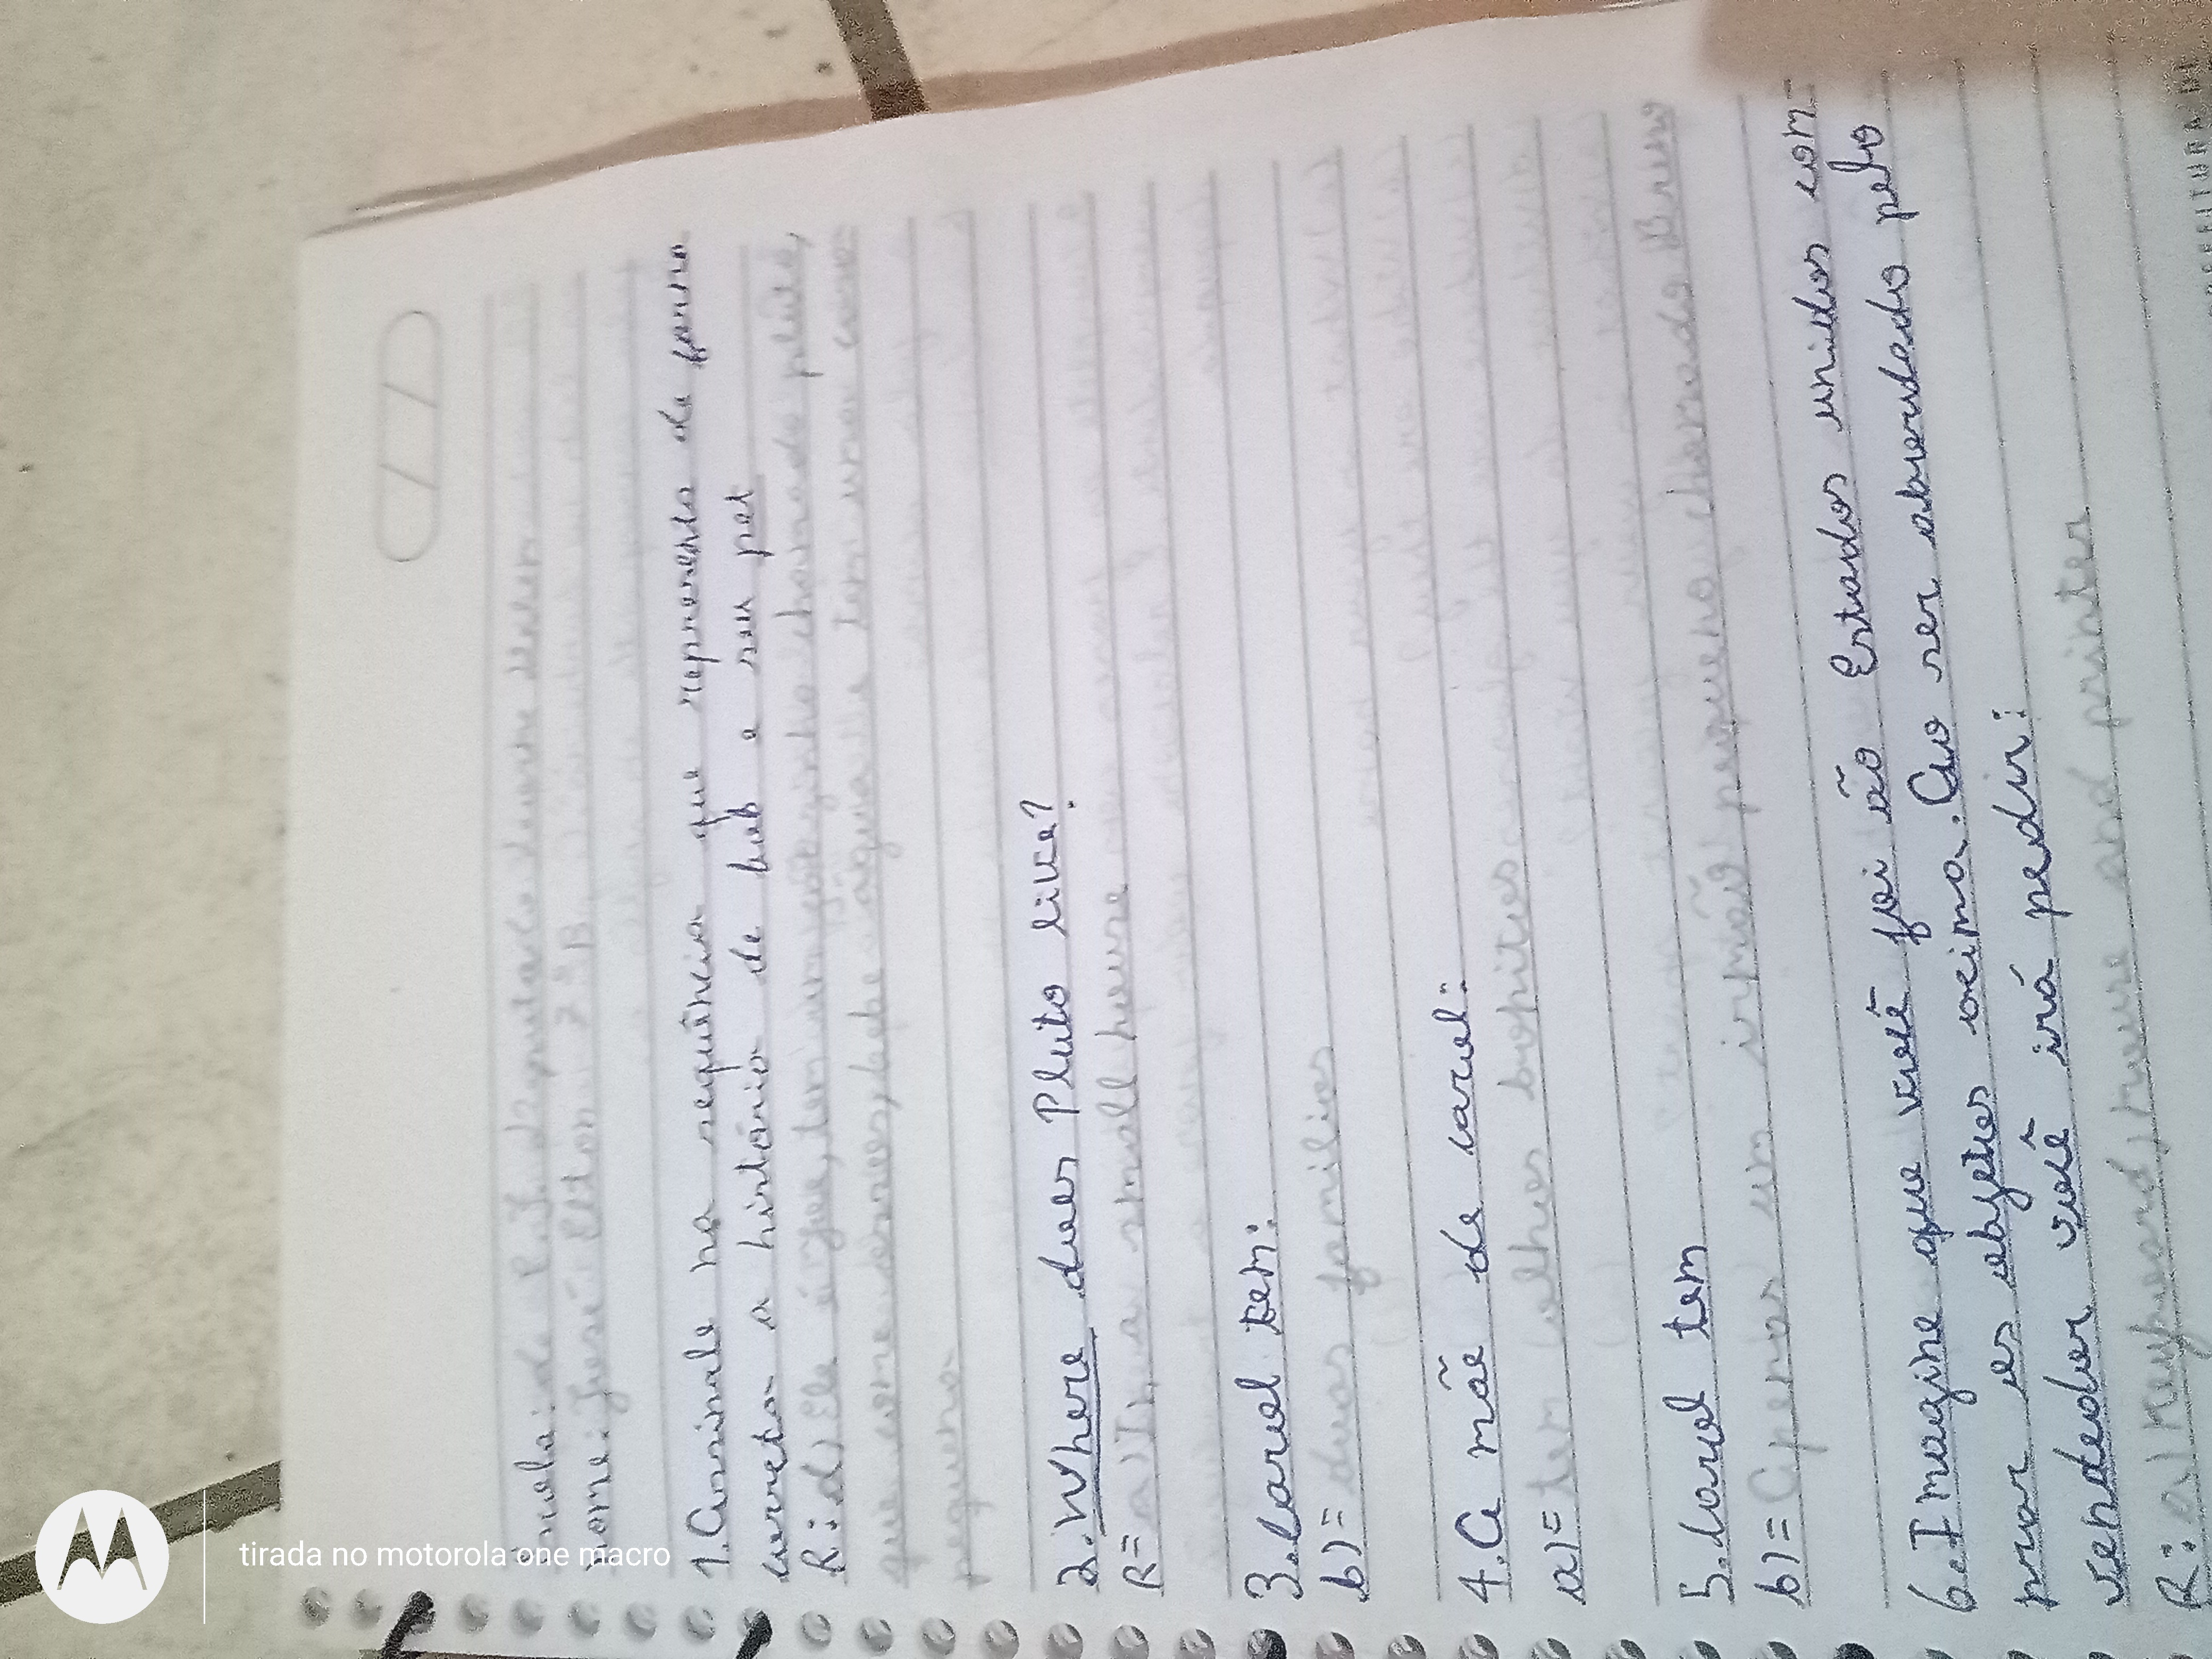 Escola: de R.J. Deputado Duarte
nome: José Elton 7º B
1. Assinale na sequência que representa de forma
correta a história de bob e seu pet
R: d) Ele é chamado pluto,
que come ossos, bebe água e tem uma casa
pequena
2. Where does Pluto live?
R= a) In a small house
3. Carol tem:
b)= duas famílias
4. A mãe de carol:
a)= tem olhos bonitos
5. Carol tem
b)= Apenas um irmão pequeno chamado Bruno
6. Imagine que você foi ão Estados unidos com-
prar os objetos acima. Ao ser abordado pelo
vendedor você irá pedir:
R: a) Keyboard, mouse and printer
tirada no motorola one macro